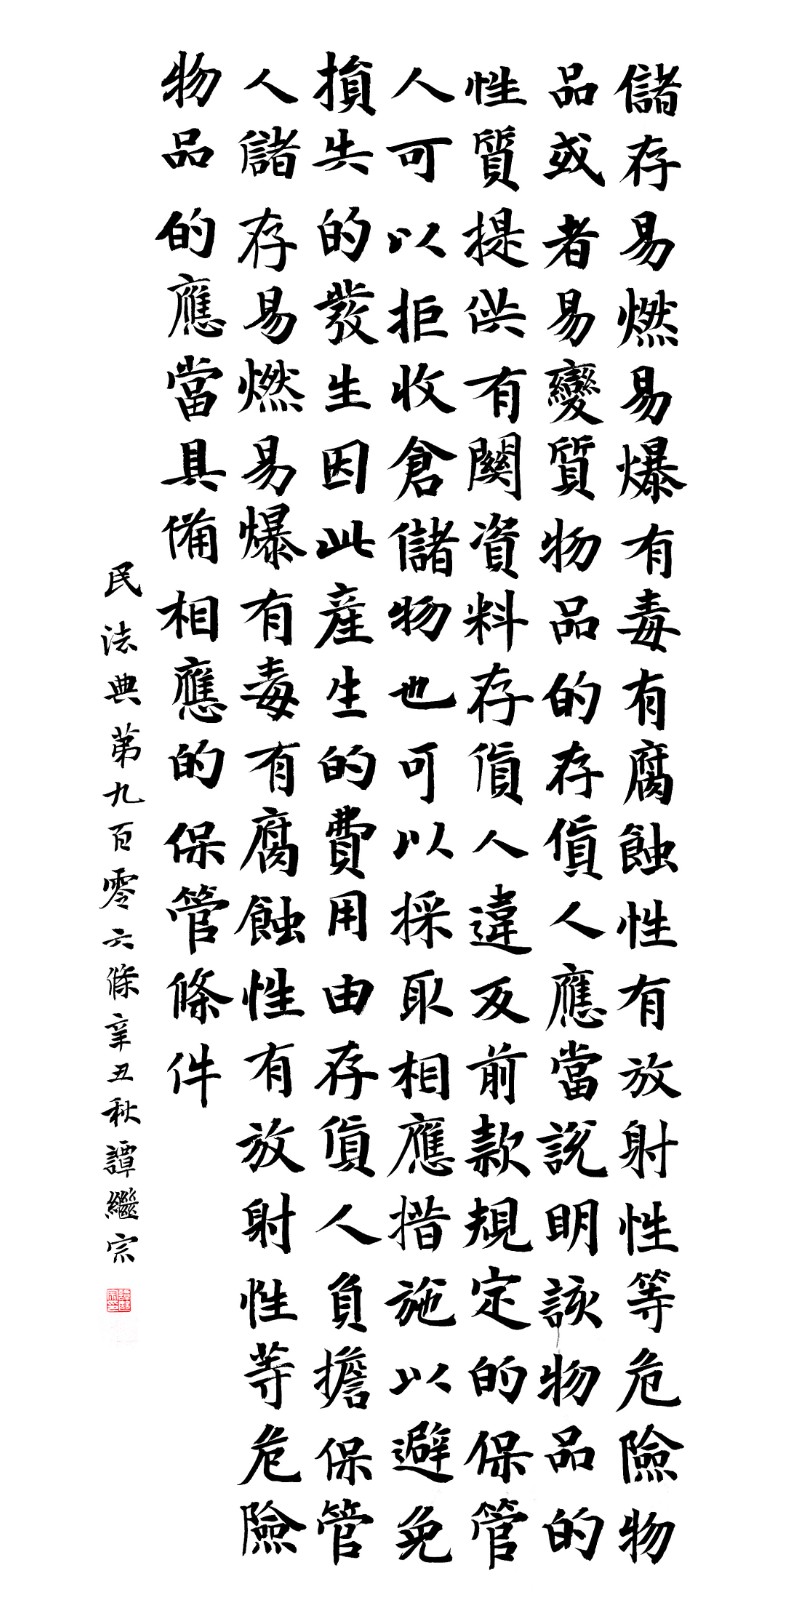 儲存易燃易爆有毒有腐蝕性有放射性等危險物
品或者易變質物品的存貨人應當説明該物品的
性質提供有關資料存貨人違反前款規定的保管
人可以拒收倉儲物也可以採取相應措施以避免
損失的發生因此産生的費用由存貨人負擔保管
人儲存易燃易爆有毒有腐蝕性有放射性等危險
物品的應當具備相應的保管條件
民法典第九百零六條辛丑秋譚繼宗